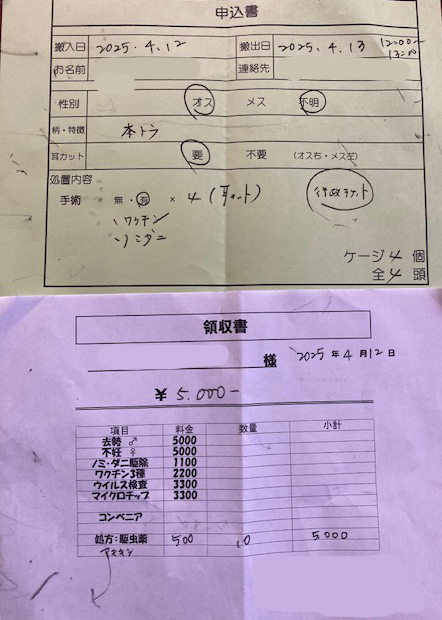 申込書
搬入日 2025.4.12 搬出日 2025.4.13 12:00〜
13:00
お名前 連絡先
性別 オス メス 不明
柄・特徴 本トラ
耳カット 要 不要 (オス右・メス左)
処置内容
手術 無・有 × 4 (耳カット) 行政チケット
ワクチン
ノミダニ
ケージ4個
全4頭
領収書
様 2025年4月12日
¥5.000-
項目 料金 数量 小計
去勢♂ 5000
不妊♀ 5000
ノミ・ダニ駆除 1100
ワクチン3種 2200
ウイルス検査 3300
マイクロチップ 3300
コンベニア
処方:駆虫薬 500 10 5000